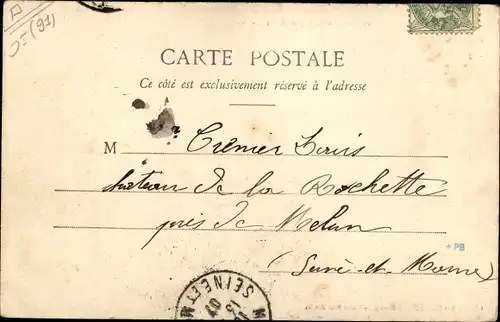 A
J=(91)
CARTE POSTALE
Ce côté est exclusivement réservé à l'adresse
M Crenier Louis
château de la Rochette
près de Melun
*PB
(Seine-et-Marne)
SEINE ET M